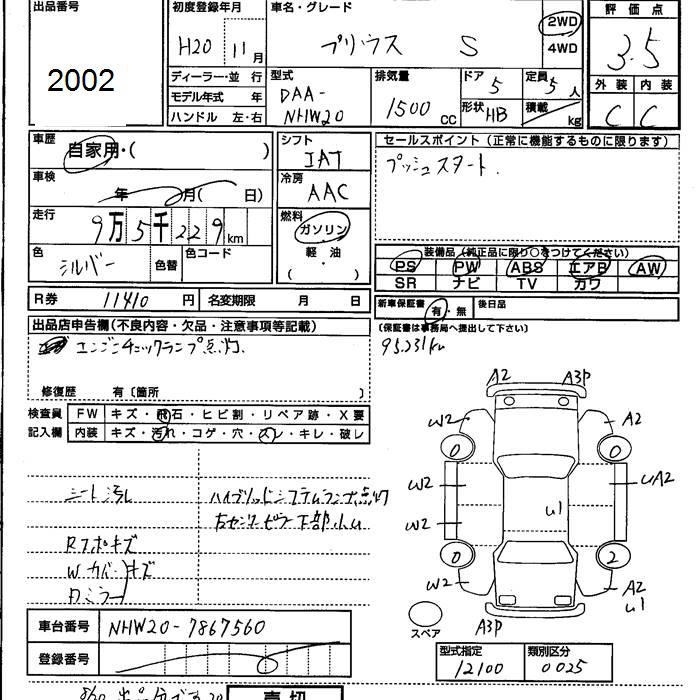 出品番号
2002
初度登録年月
H20 11月
ディーラー・並 行
モデル年式 年
ハンドル 左・右
車名・グレード
プリウス S
2WD
4WD
型式
DAA-
NHW20
排気量
1500 CC
ドア 5
形状 HB
定員 5人
積載 kg
評価点
3.5
外装 内装
C C
車歴
自家用・( )
車検
年 月( 日)
走行
9万5千229km
色
シルバー
色替
色コード
シフト
IAT
冷房
AAC
燃料
ガソリン
軽・油
( ・ )
R券 11410 円
名変期限 月 日
セールスポイント(正常に機能するものに限ります)
プッシュスタート.
装備品(純正品に限り○をつけてください)
PS PW ABS エアB AW
SR ナビ TV カワ
新車保証書 有・無
後日品
(保証書は事務局へ提出して下さい)
95231km
出品店申告欄(不良内容・欠品・注意事項等記載)
エンジンチェックランプ点灯.
修復歴 有〔箇所 〕
検査員
記入欄
FW キズ・飛石・ヒビ割・リペア跡・X要
内装 キズ・汚れ・コゲ・穴・スレ・キレ・破レ
シート汚れ
ハイブリッドシステムランプ点灯
右センターピラー下部小U
Rフポキズ
Wカバーキズ
Rミラー
A2 A3P
W2 A2
0 0
W2 UA2
W2 U1
0 2
W2 A2
U1
A3P
スペア
車台番号 NHW20-7867560
登録番号
型式指定 12100
類別区分 0025
売切